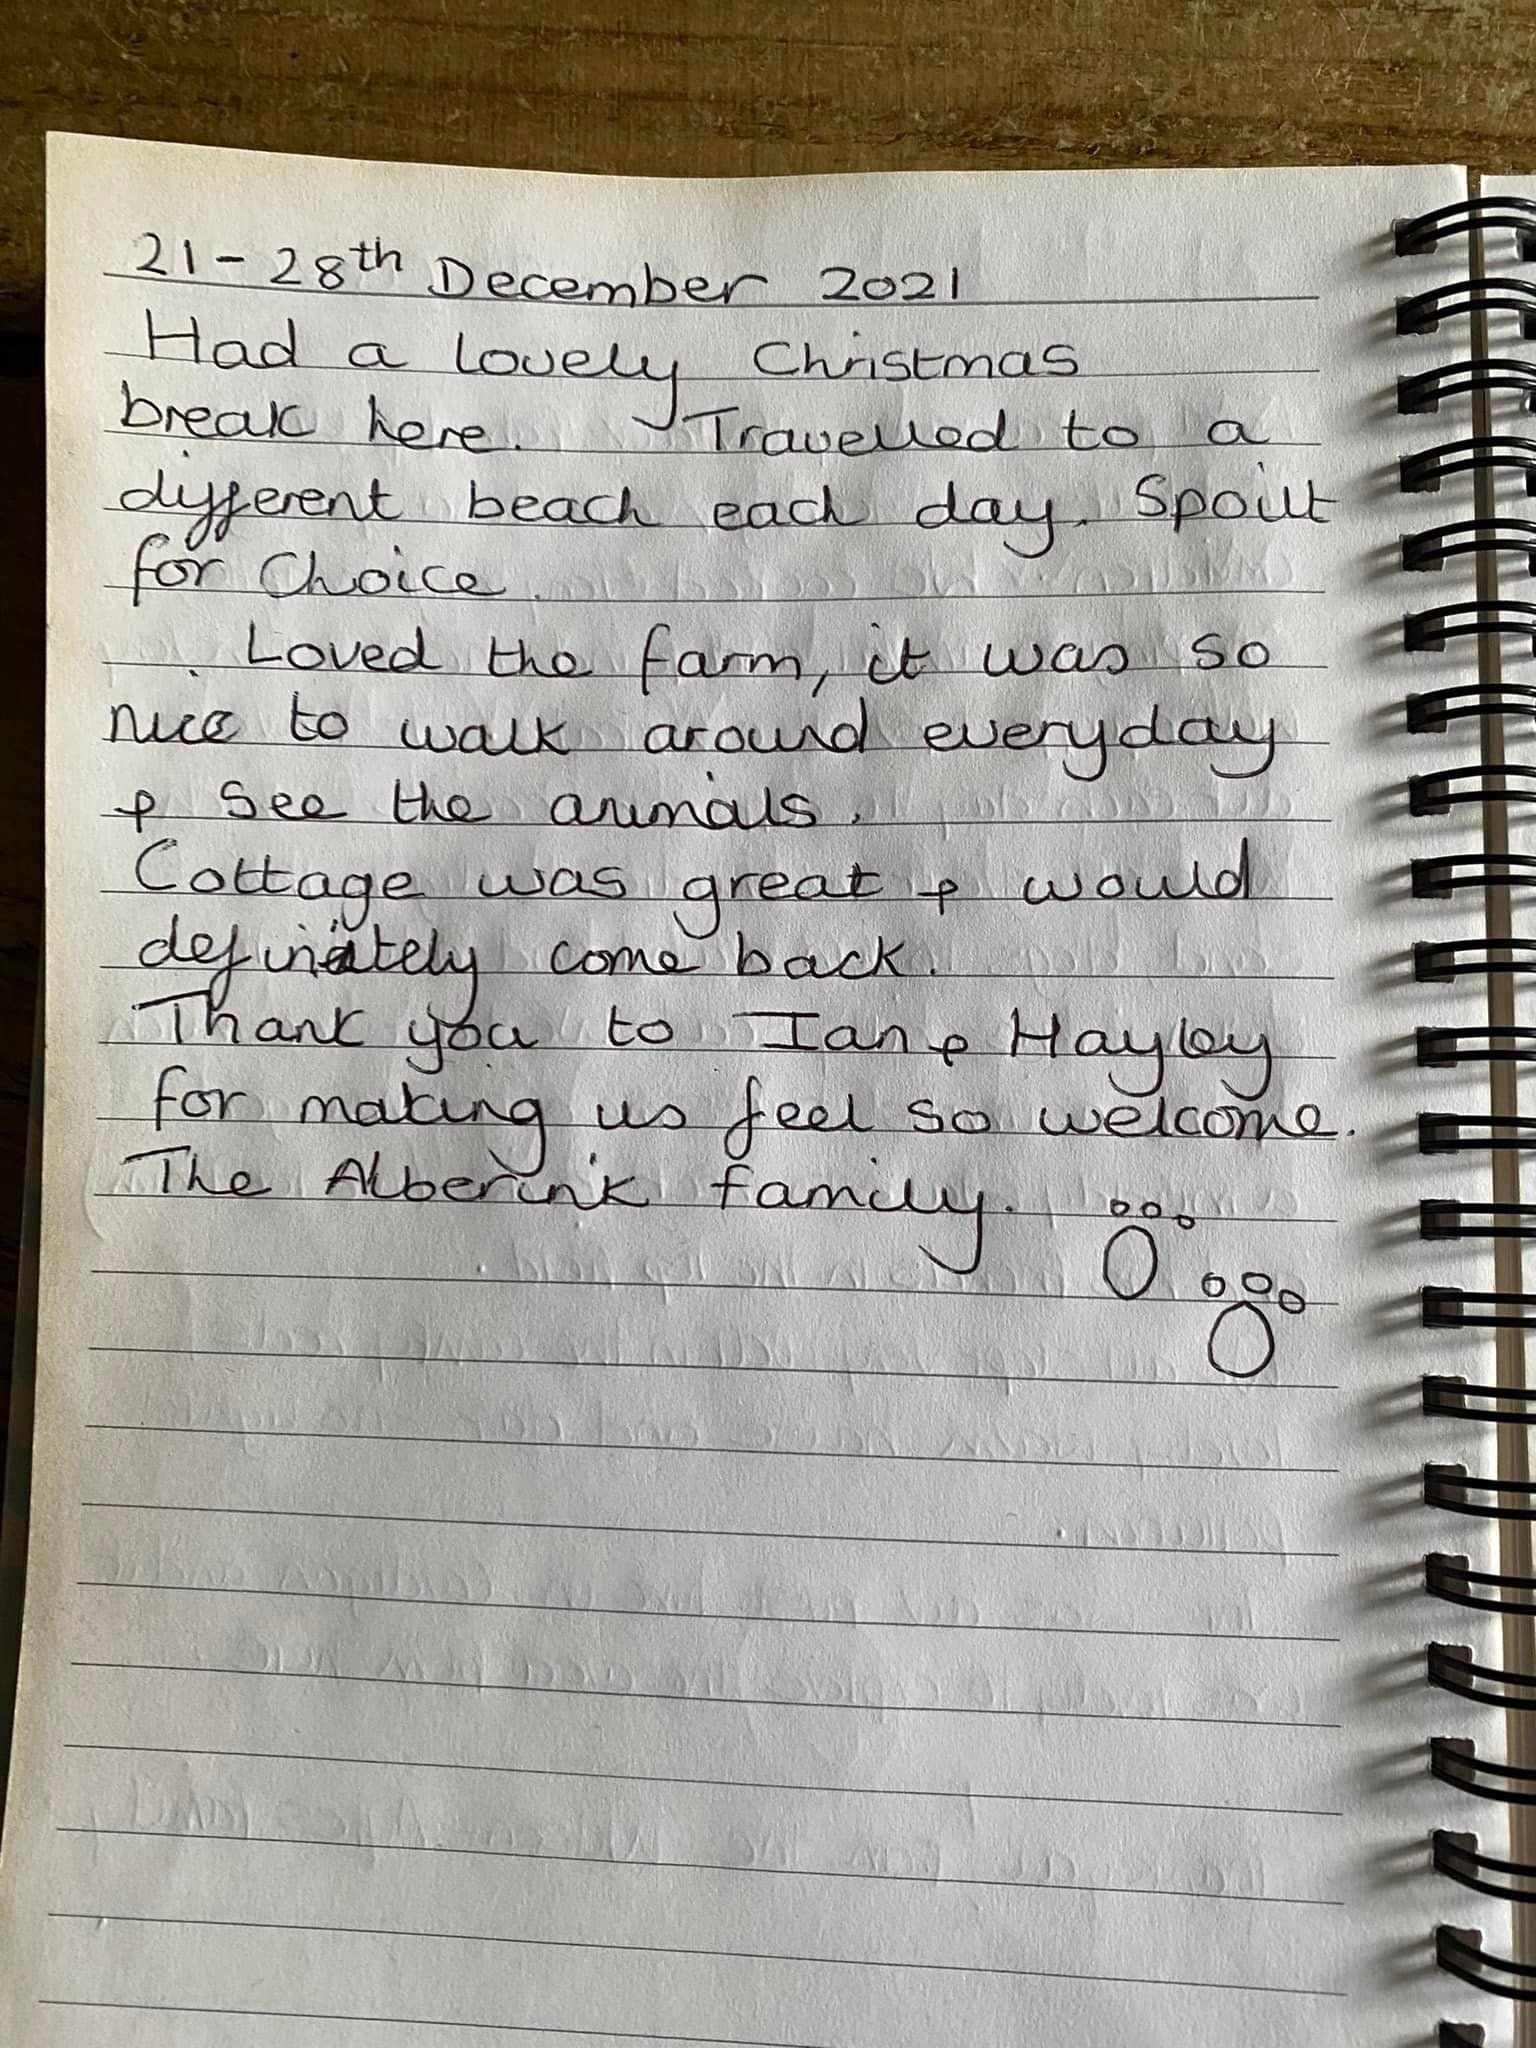 21 - 28th December 2021
Had a lovely Christmas
break here. Travelled to a
different beach each day. Spoilt
for Choice.
Loved the farm, it was so
nice to walk around everyday
& see the animals.
Cottage was great & would
definitely come back.
Thank you to Ian & Hayley
for making us feel so welcome.
The Alberink family.